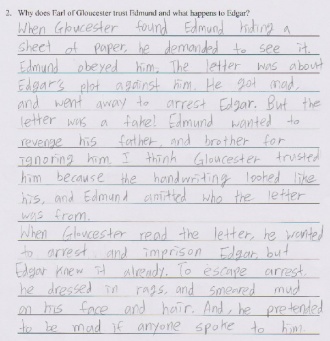 2. Why does Earl of Gloucester trust Edmund and what happens to Edgar?
When Gloucester found Edmund hiding a
sheet of paper, he demanded to see it.
Edmund obeyed him. The letter was about
Edgar's plot against him. He got mad,
and went away to arrest Edgar. But the
letter was a fake! Edmund wanted to
revenge his father, and brother for
ignoring him. I think Gloucester trusted
him because the handwriting looked like
his, and Edmund amitted who the letter
was from.
When Gloucester read the letter, he wanted
to arrest, and imprison Edgar, but
Edgar knew it already. To escape arrest,
he dressed in rags, and smeared mud
on his face and hair. And, he pretended
to be mad if anyone spoke to him.